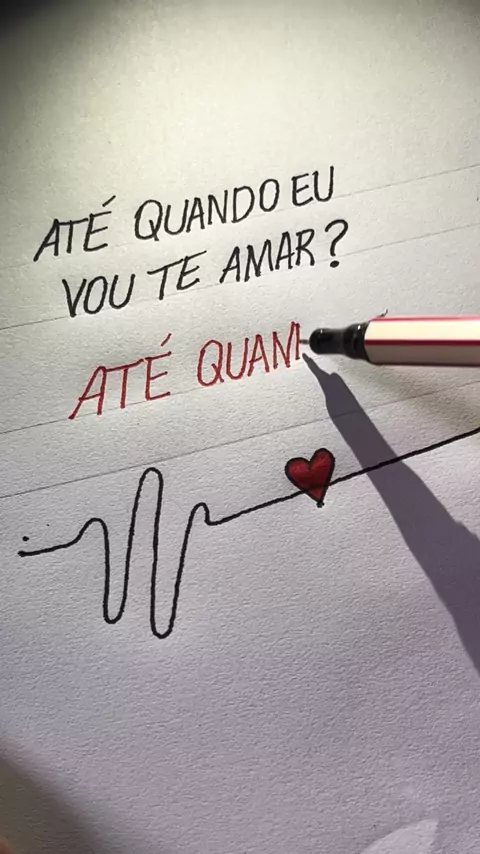 ATÉ QUANDO EU
VOU TE AMAR?
ATÉ QUAN